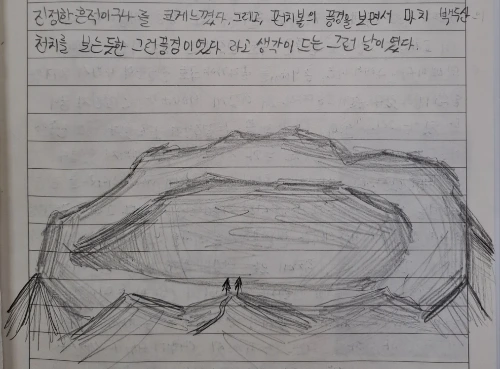 진정한 흔적이구나 를 크게 느꼈다. 그리고, 펀치볼의 풍경을 보면서 마치 백두산
천지를 보는듯한 그런풍경이었다. 라고 생각이 드는 그런 날이 였다.